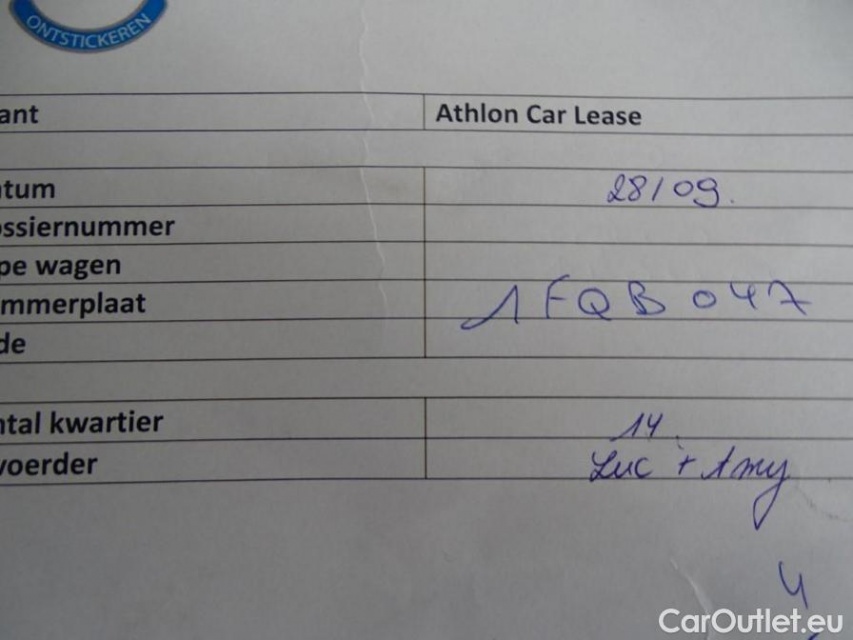 ONTSTICKEREN
ant Athlon Car Lease
tum 28/09.
ssiernummer
pe wagen
mmerplaat 1FQB047
de
ntal kwartier 14
voerder Luc + Amy
4
CarOutlet.eu